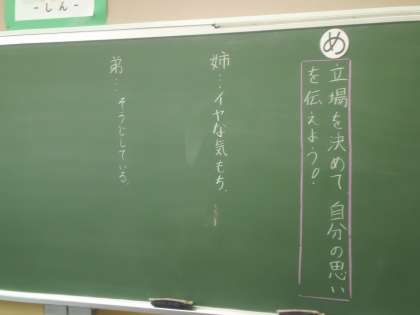 め
立場を決めて自分の思い
を伝えよう!
姉…イヤな気もち。
弟…そうじしている。
-しん-